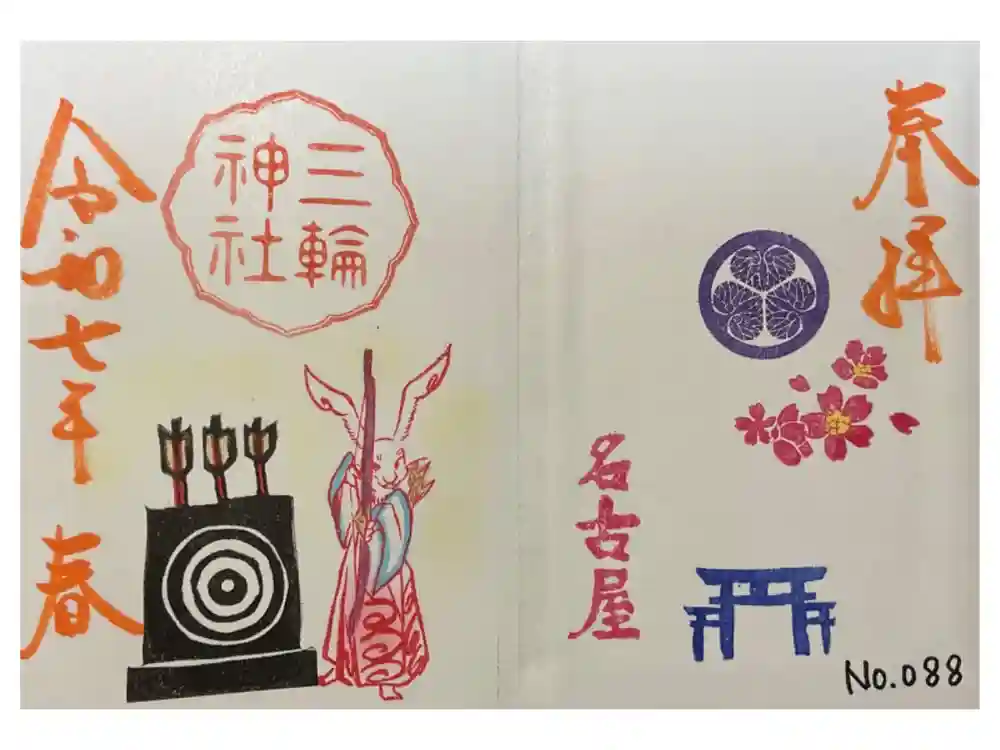 奉拝
名古屋
No.088
三輪
神社
令和七年 春